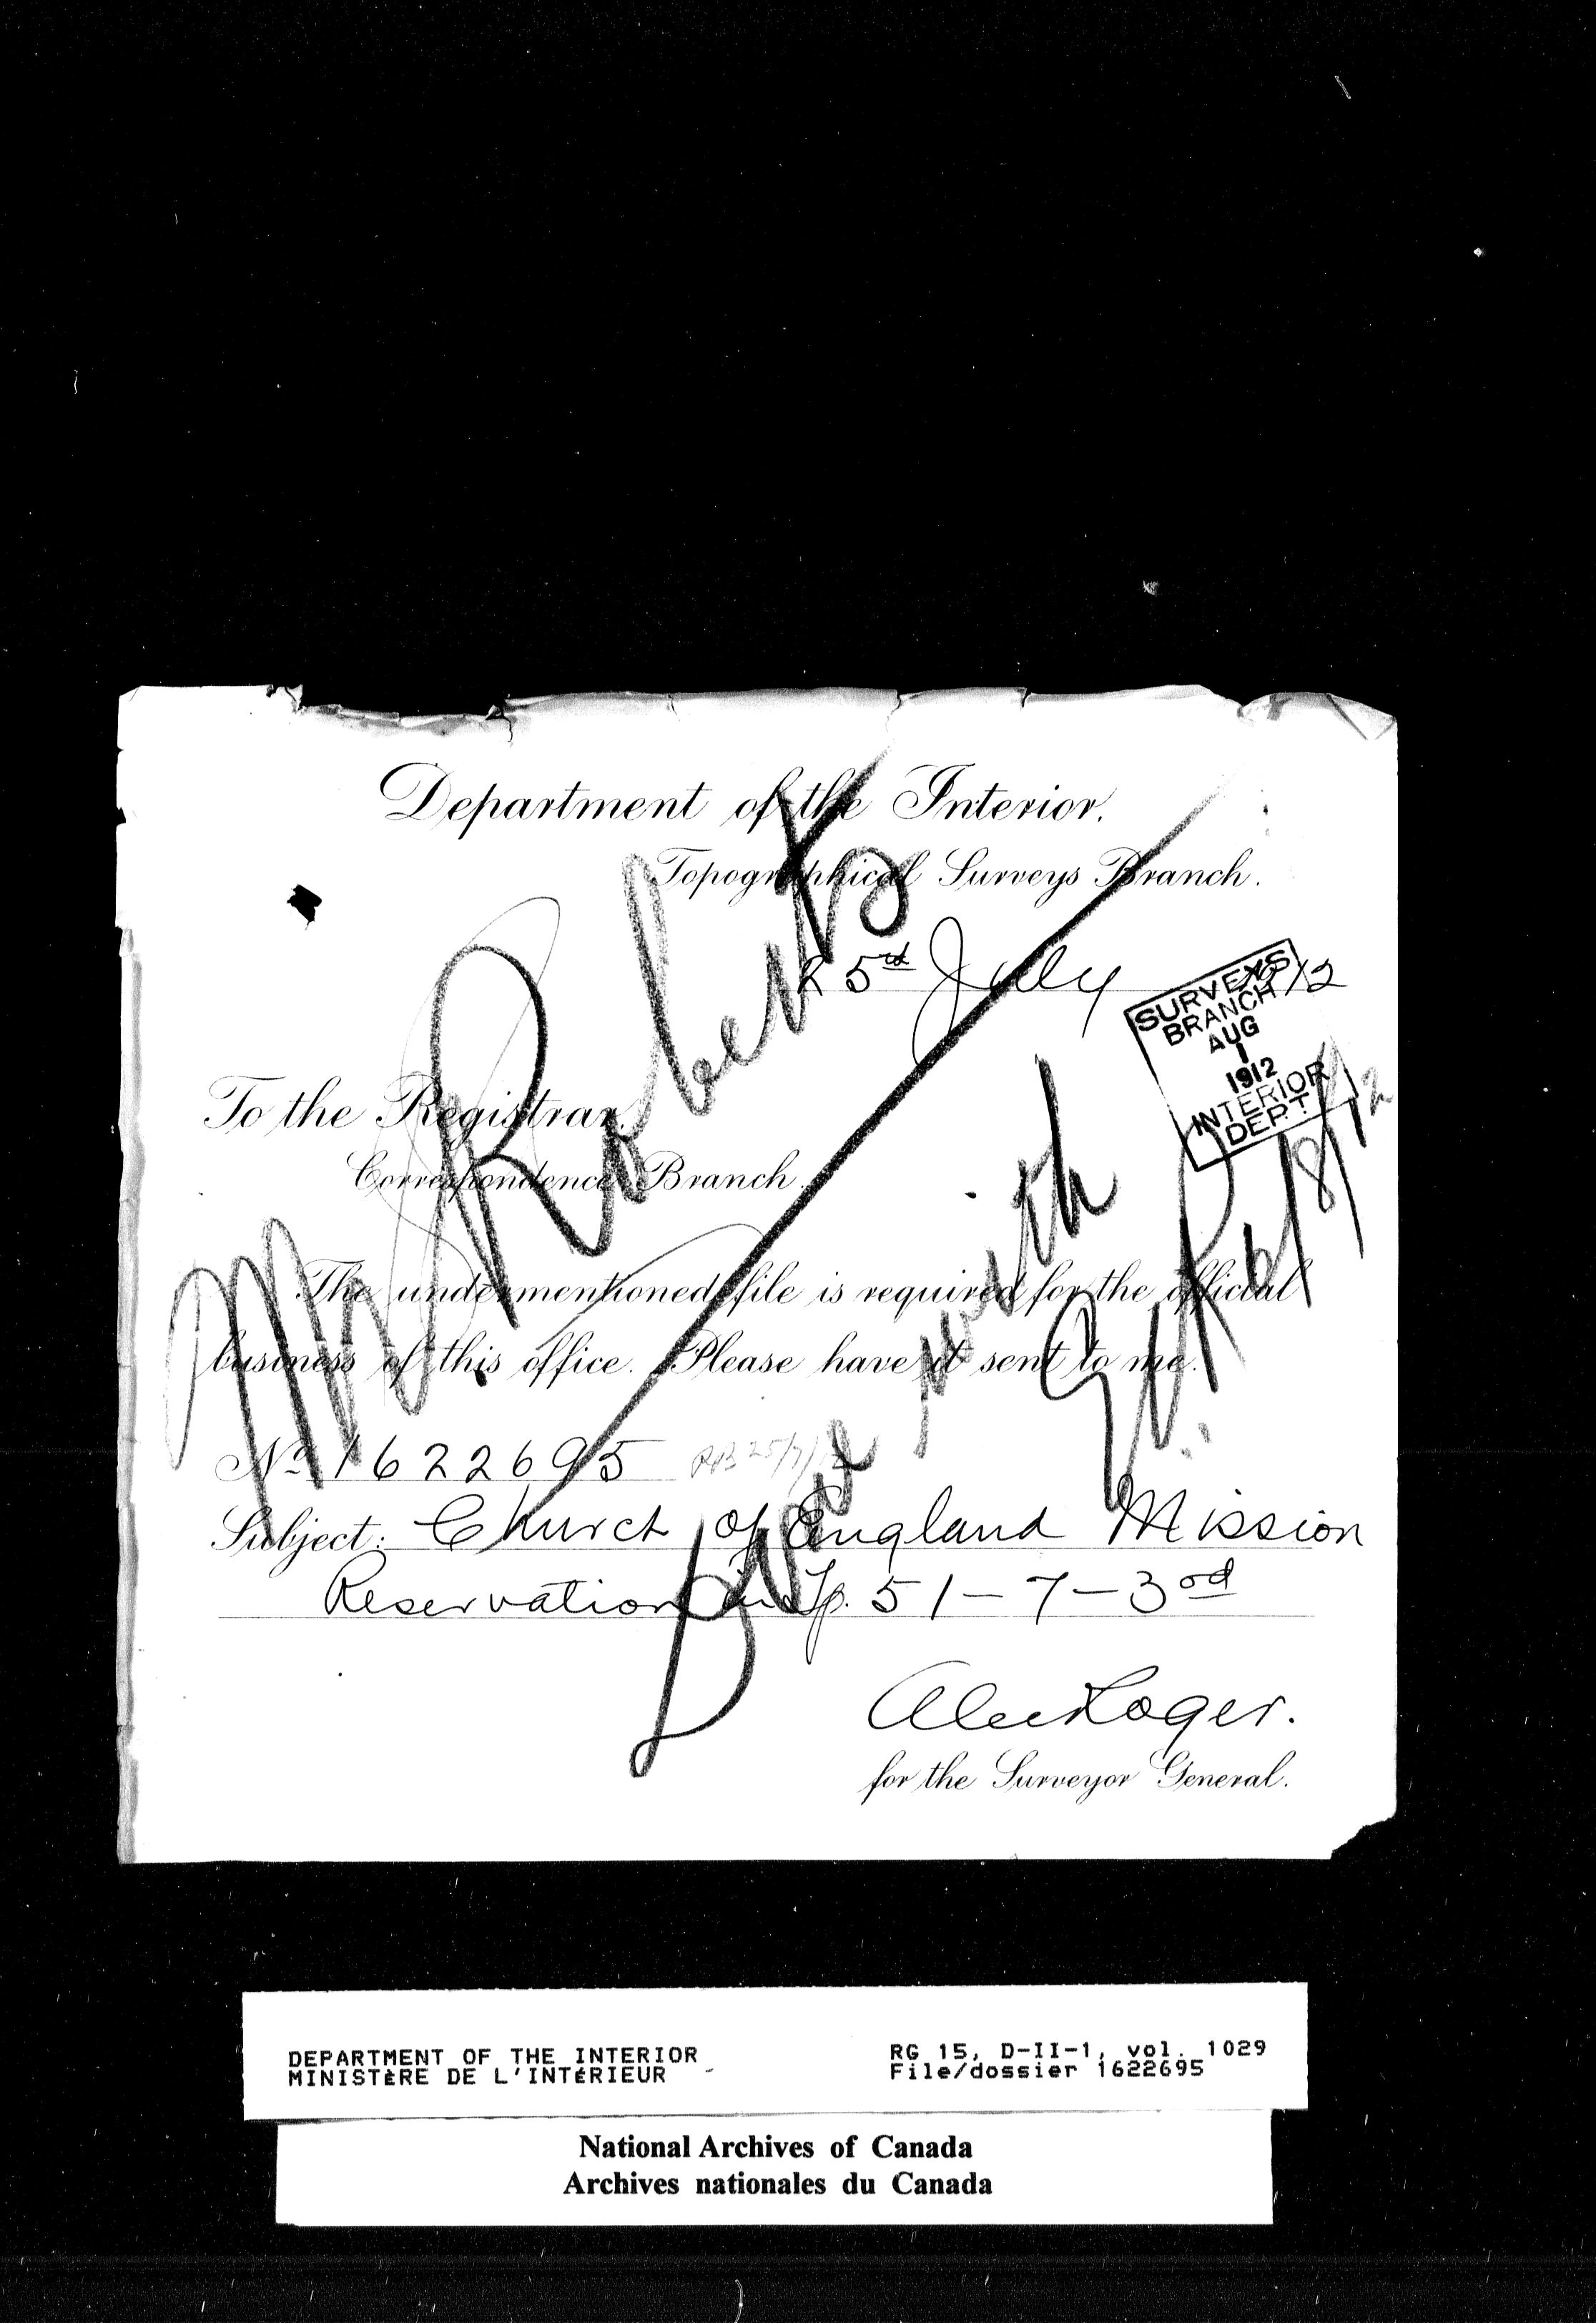 Department of the Interior.
Topographical Surveys Branch.
25rd July 1912
SURVEYS
BRANCH
AUG
1
1912
INTERIOR
DEPT
To the Registrar,
Correspondence Branch.
Mr. Roberts
The undermentioned file is required for the official
business of this office. Please have it sent to me.
Done with
6/8/12
No. 1622695
Subject: Church of England Mission
Reservation in Tp. 51-7-3rd
for the Surveyor General.
DEPARTMENT OF THE INTERIOR
MINISTÈRE DE L'INTÉRIEUR
RG 15, D-II-1, vol. 1029
File/dossier 1622695
National Archives of Canada
Archives nationales du Canada